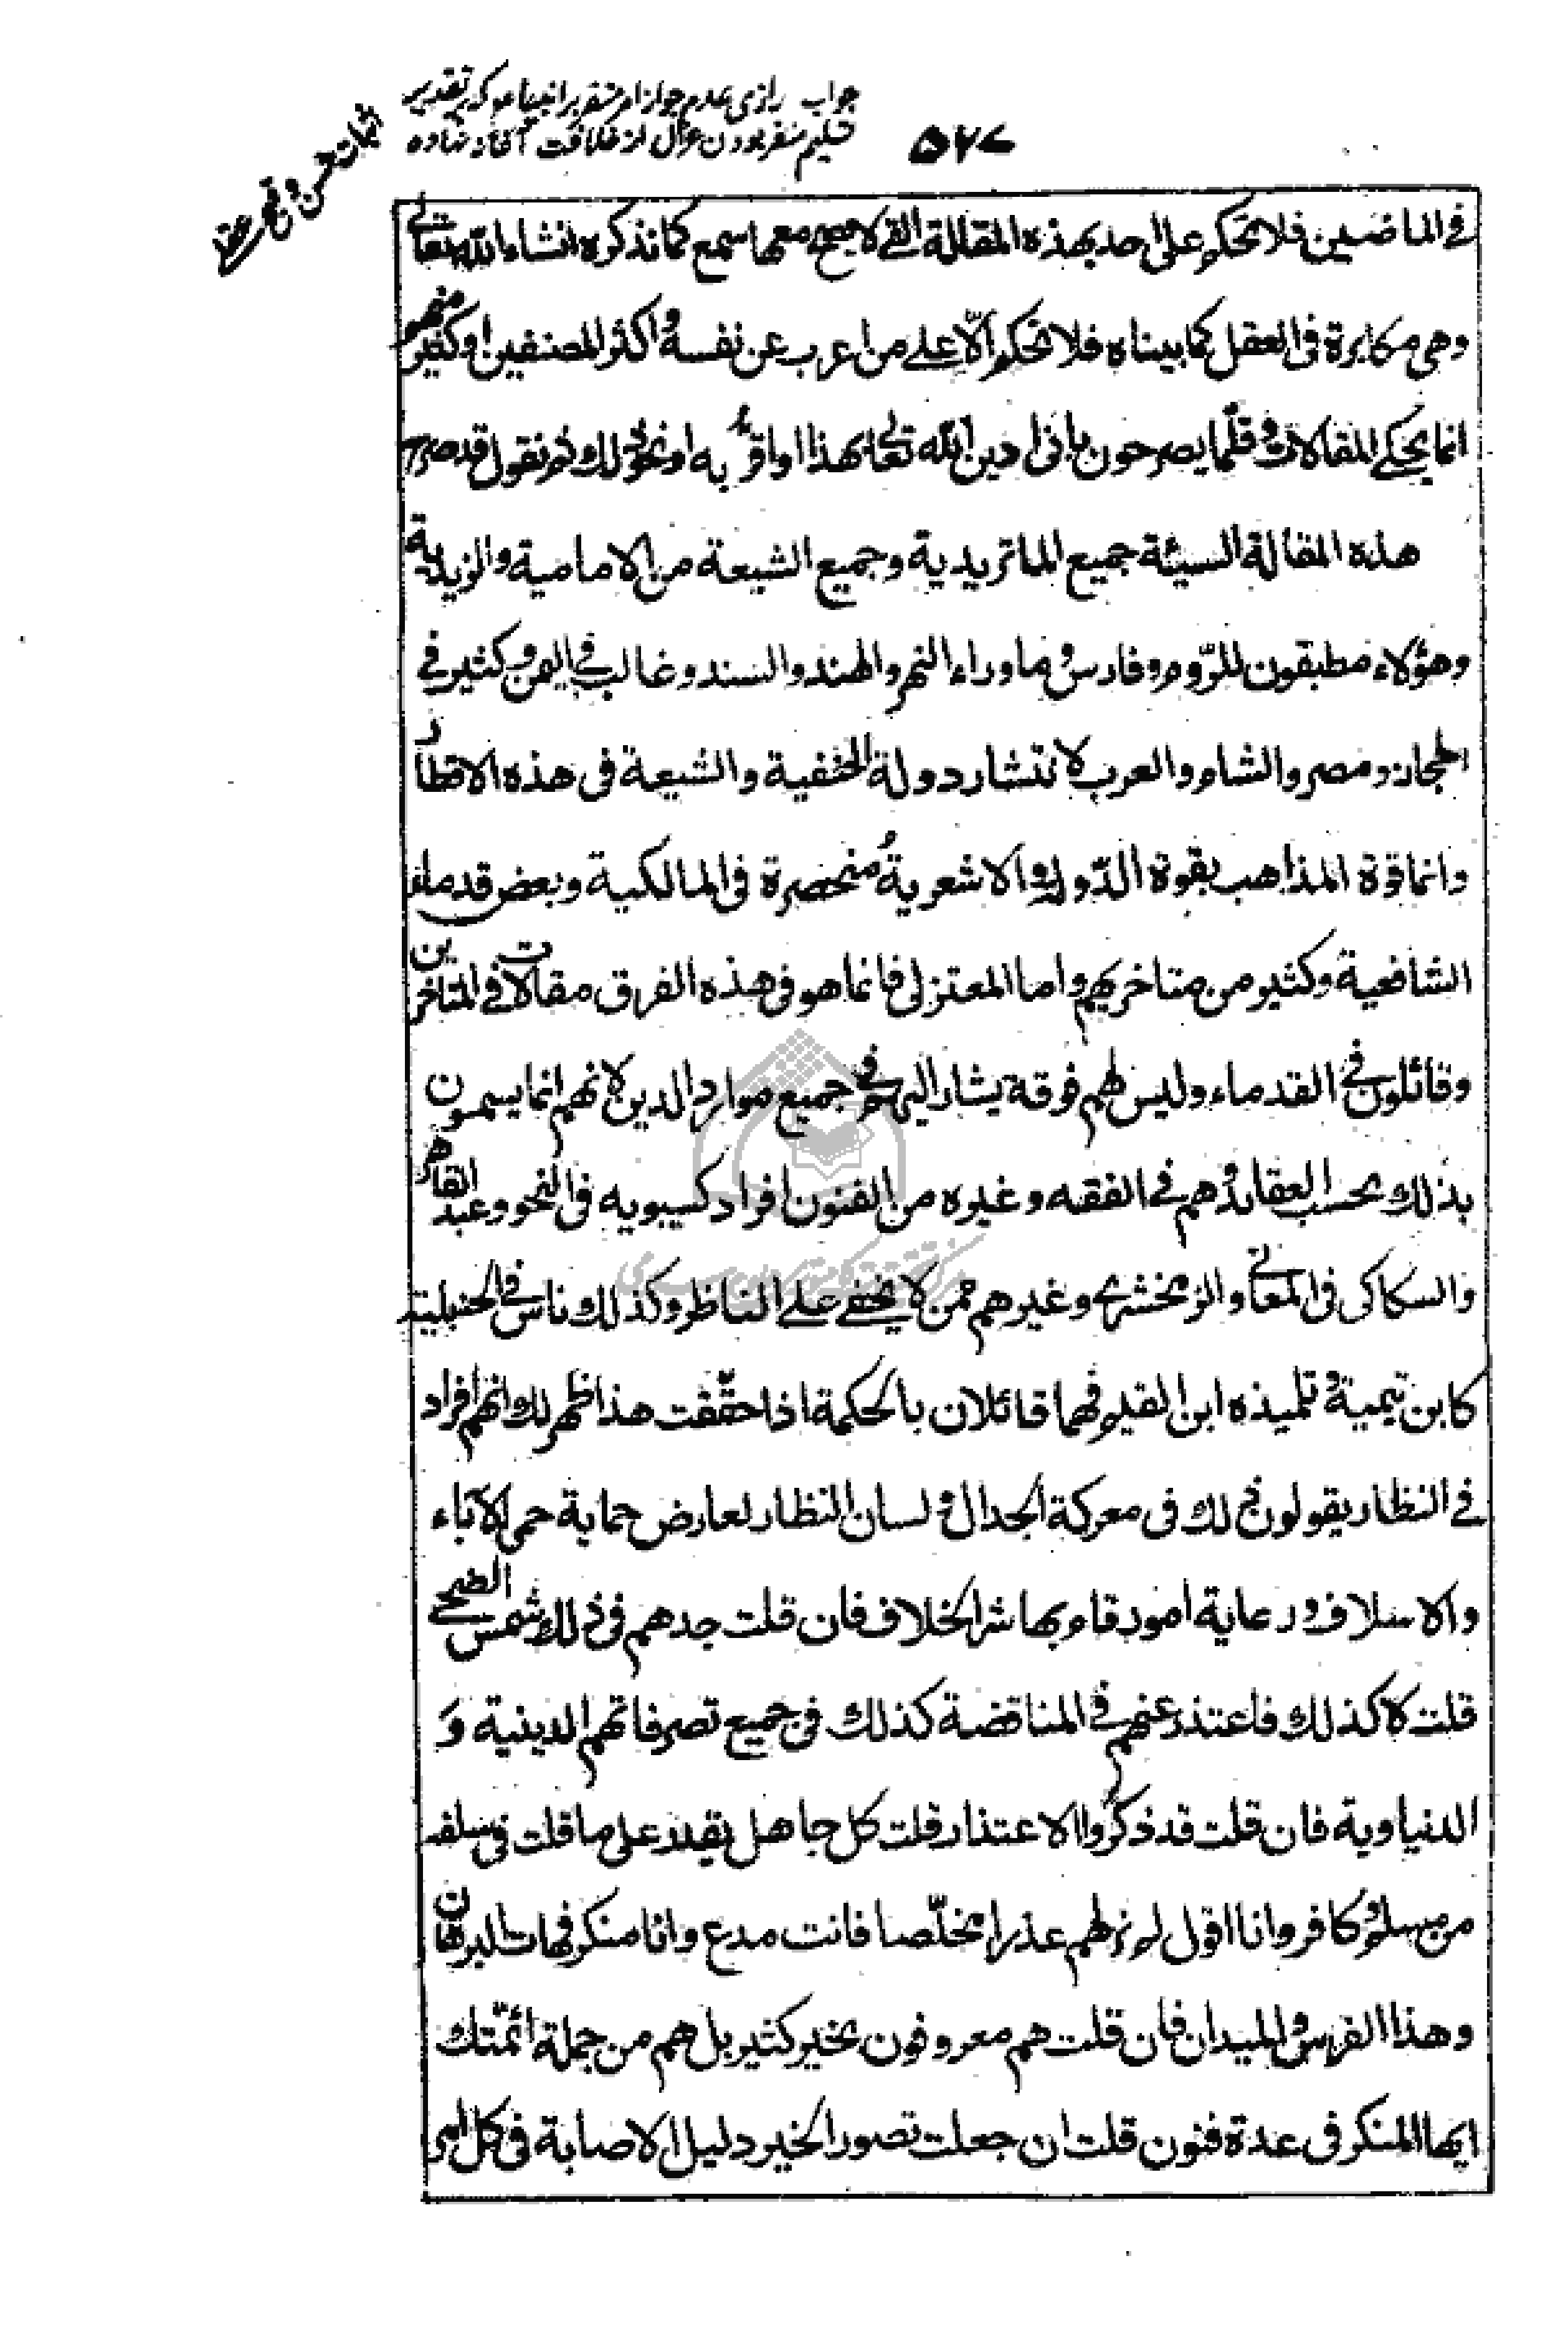 جواب رازی عدم جواز امر منفر بر انبیاء عو که بر تقدیر
تسلیم منفر بودن عزل از خلافت آغاز نهاده
۵۶۷
اثبات حسن و قبح عقلی
فی الماضین فلا تحکم علی احد بهذه المقالة التی لا یصح معها سمع کما نذکره انشاء الله تعالی
وهی مکابرة فی العقل کما بیناه فلا تحکم الّا علی من اعرب عن نفسه و اکثر المصنفین او کثیر منهم
انما یحکی المقالات و قلّما یصرحون بانی ادین الله تعالی بهذا او اقر به او نحو ذلک ثم نقول قد صرح
هذه المقالة السیئة جمیع الماتریدیة وجمیع الشیعة من الامامیة والزیدیة
وهؤلاء مطبقون للرّوم وفارس و ما وراء النهر والهند والسند وغالب فی الیمن و کثیر فی
الحجاز ومصر والشام والعرب لانتشار دولة الحنفیة والشیعة فی هذه الاقطار
وانما قوة المذاهب بقوة الدّول و الاشعریة منحصرة فی المالکیة وبعض قدماء
الشافعیة وکثیر من متاخریهم واما المعتزلی فانما هو فی هذه الفرق مقالات فی المتاخرین
وقائلون فی القدماء ولیس لهم فرقة یشار الیهم فی جمیع موارد الدین لانهم انما یسمون
بذلک بحسب العقائد و هم فی الفقه وغیره من الفنون افراد کسیبویه فی النحو وعبد القاهر
والسکاکی فی المعانی والزمخشری وغیرهم ممن لا یخفی علی الناظر وکذلک ناس فی الحنبلیة
کابن تیمیة و تلمیذه ابن القیم فهما قائلان بالحکمة اذا حقّقت هذا ظهر لک انهم افراد
فی النظار یقولون ذلک فی معرکة الجدال و لسان النظار لعارض حمایة حمی الآباء
والاسلاف ورعایة امور قام بها شر الخلاف فان قلت جدهم فی ذلک شمس الضحی
قلت کا کذلک فاعتذر عنهم فی المناقضة کذلک فی جمیع تصرفاتهم الدینیة وَ
الدنیاویة فان قلت قد ذکروا الاعتذار قلت کل جاهل یقدر علی ما قلت فی سلفه
من مسلم و کافر وانا اقول لم نر لهم عذرا مخلّصا فانت مدع وانا منکر فهات البرهان
وهذا الفرس و المیدان فان قلت هم معروفون بخیر کثیر بل هم من جملة ائمّتک
ایها المنکر فی عدة فنون قلت ان جعلت تصور الخیر دلیل الاصابة فی کل امر